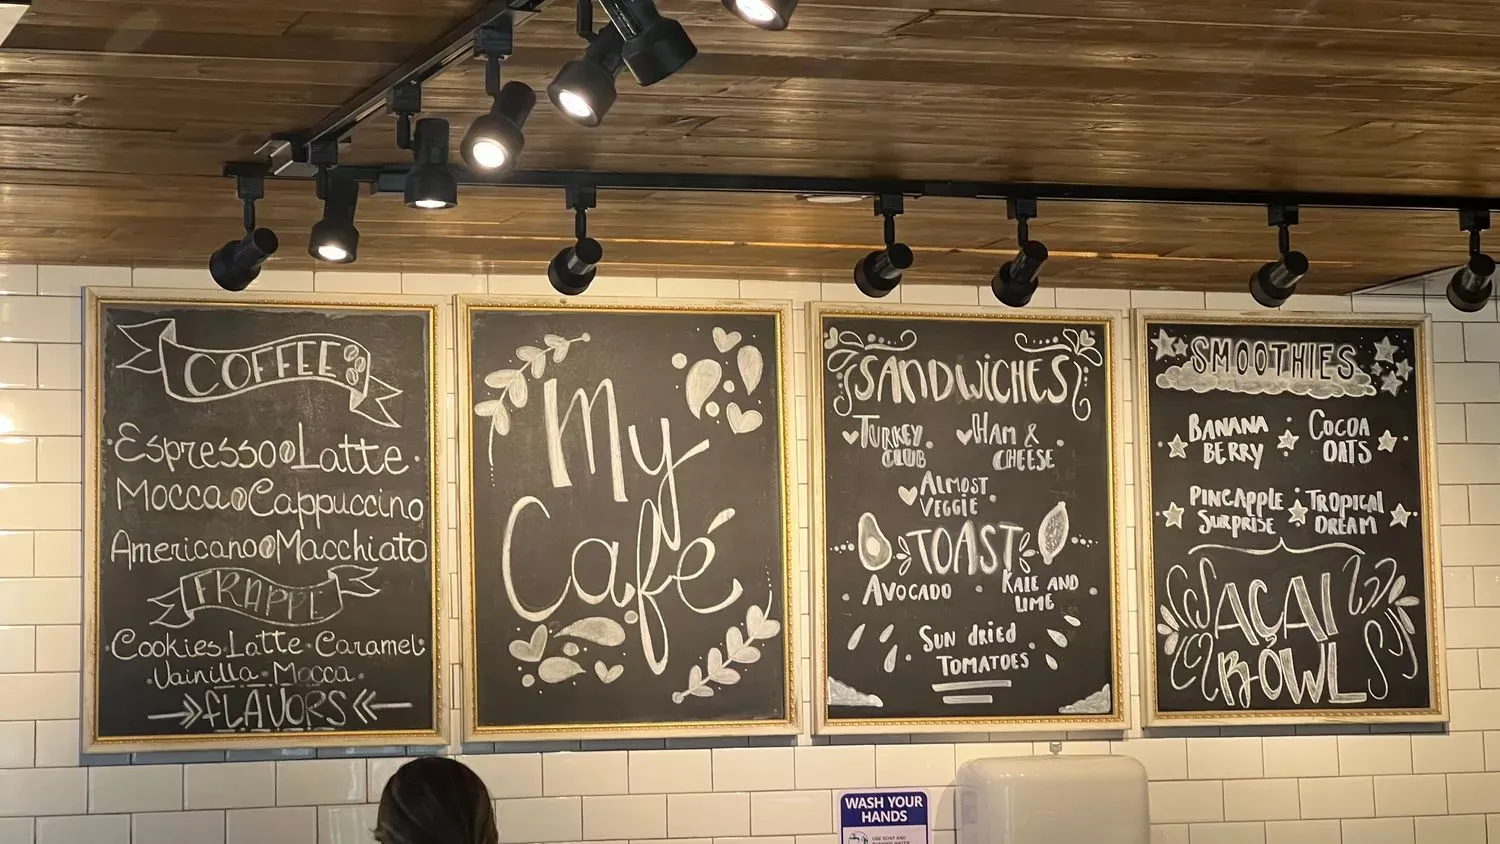 COFFEE
Espresso Latte
Mocca Cappuccino
Americano Macchiato
FRAPPE
Cookies Latte Caramel
Vainilla Mocca
FLAVORS
My
Café
SANDWiCHES
TURKEY
CLUB
HAM &
CHEESE
ALMOST
VEGGIE
TOAST
AVOCADO
KALE AND
LIME
SUN dRiEd
TOMATOES
SMOOTHIES
BANANA
BERRY
COCOA
OATS
PINEAPPLE
SURPRISE
TROPICAL
DREAM
AÇAI
BOWL
WASH YOUR
HANDS
USE SOAP AND